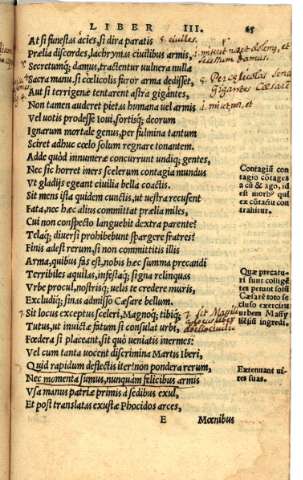 LIBER III. 65
At si funestas acies, si dira paratis
Prælia discordes, lachrymas ciuilibus armis,
Secretumq; damus, tractentur vulnera nulla
Sacra manu. si cœlicolis furor arma dedisset,
Aut si terrigenæ tentarent astra gigantes,
Non tamen auderet pietas humana vel armis
Vel uotis prodesse Ioui, sortisq; deorum
Ignarum mortale genus, per fulmina tantum
Sciret adhuc cœlo solum regnare tonantem.
Adde quòd innumeræ concurrunt undiq; gentes,
Nec sic horret iners scelerum contagia mundus
Vt gladijs egeant ciuilia bella coactis.
Sit mens ista quidem cunctis, ut uestra recusent
Fata, nec hæc alius committat prælia miles,
Cui non conspecto languebit dextra parente?
Telaq; diuersi prohibebunt spargere fratres?
Finis adest rerum, si non committitis illis
Arma, quibus fas est, nobis hæc summa precandi
Terribiles aquilas, infestaq; signa relinquas
Vrbe procul, nostrisq; uelis te credere muris,
Excludiq; sinas admisso Cæsare bellum.
Sit locus exceptus sceleri, Magnoq; tibiq;
Tutus, ut inuictæ fatum si consulat urbi,
Fœdera si placeant, sit quò ueniatis inermes:
Vel cum tanta uocent discrimina Martis Iberi,
Quid rapidum deflectis iter? non pondera rerum,
Nec momenta sumus, nunquam felicibus armis
Vsa manus patriæ primis à sedibus exul,
Et post translatas exustæ Phocidos arces,
E Mœnibus
Contagiũ
Extenuant ui
res suas.